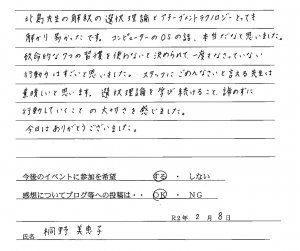 北島先生の解釈の選択理論とアチーブメントテクノロジーとても
解かり易かったです。コンピューターのOSの話、本当だなぁと思いました。
致命的な7つの習慣を使わないと決められて、一度もなさっていない
行動力はすごいと思いました。スタッフにごめんなさいと言える先生は
素晴しいと思います。選択理論を学び続けること、諦めずに
行動していくことの大切さを感じました。
今日はありがとうございました。
今後のイベントに参加を希望 する・しない
感想についてブログ等への投稿は・・ OK・NG
R2年 2月 8日
氏名 桐野 美恵子